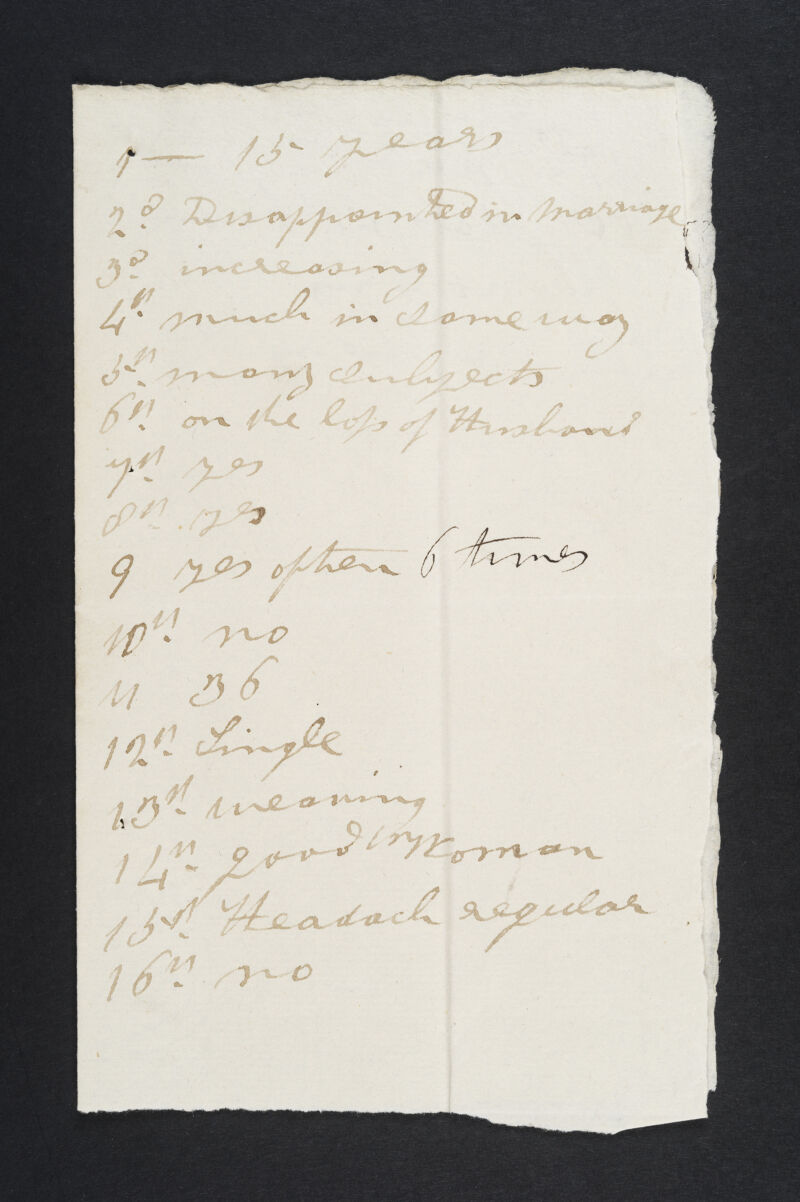 1 — 15 years
2d Disappointed in Marriage
3d increasing
4th much in same way
5th many subjects
6th on the loss of Husband
7th yes
8th yes
9 yes often 6 times
10th no
11 36
12th Single
13th weaving
14th good Woman
15th Headach regular
16th no